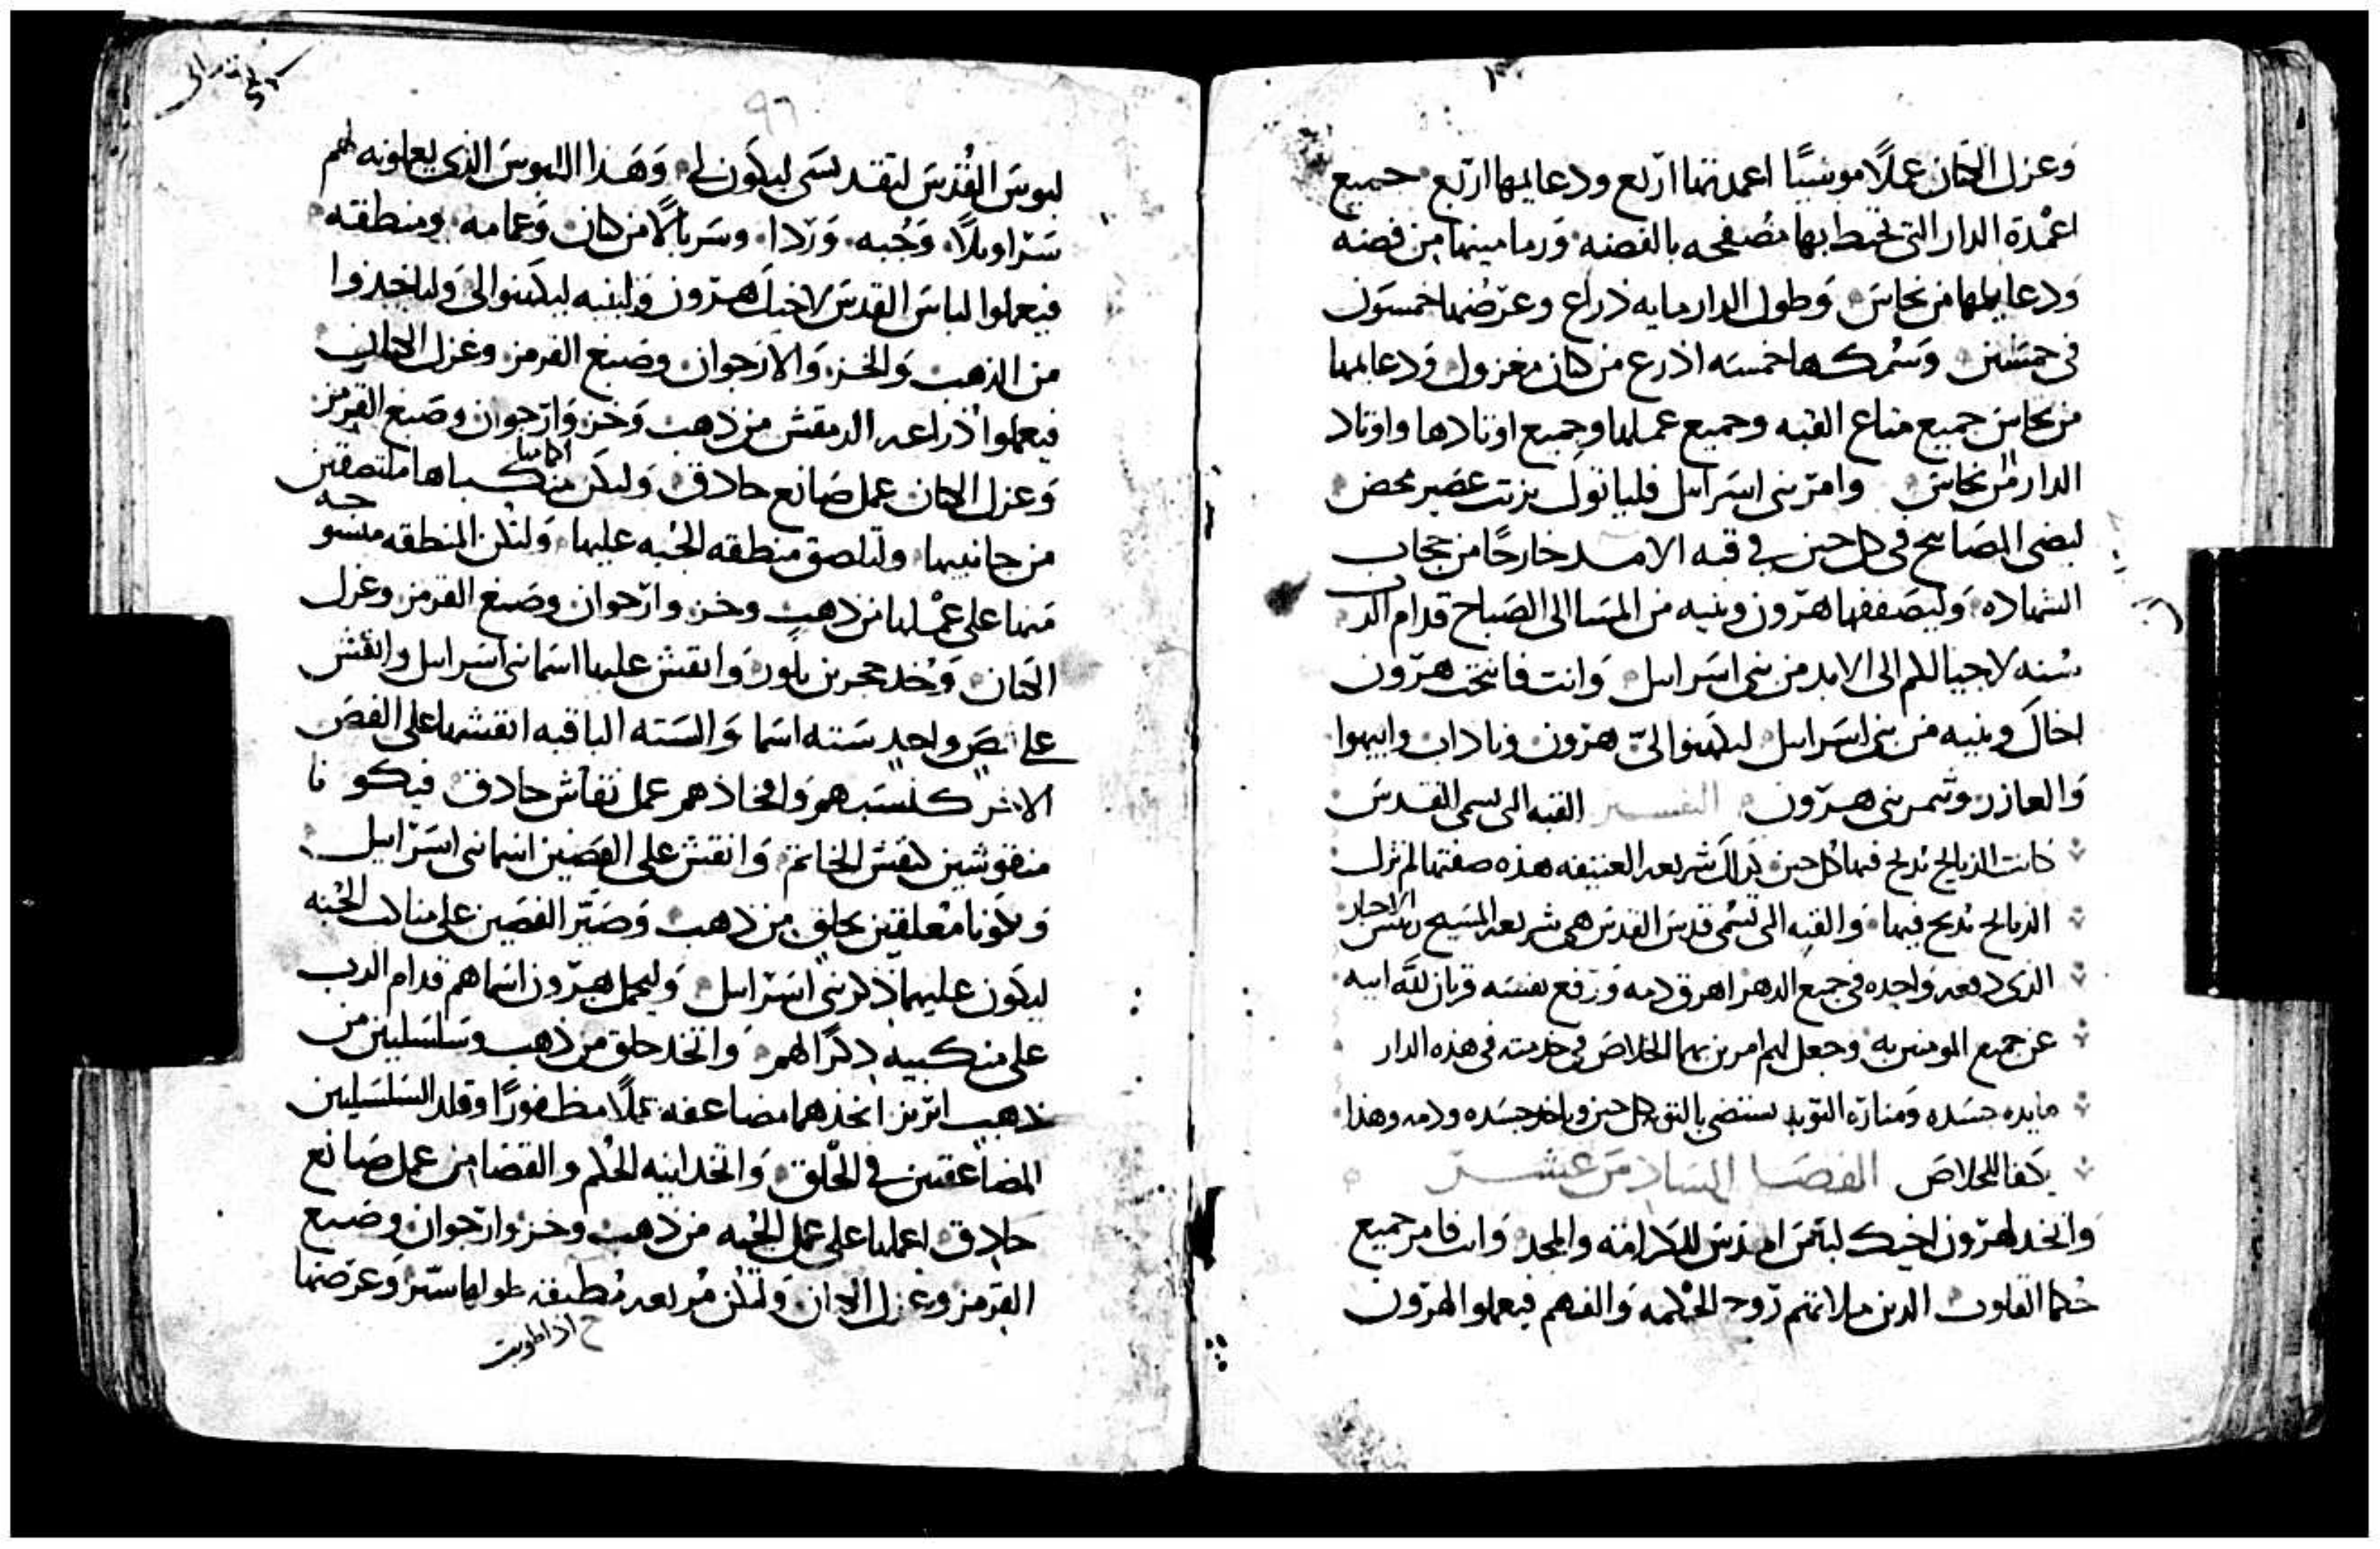 وغزل الكتان عملًا موشيًا اعمدتها اربع ودعايمها اربع جميع
اعمدة الدار التي تحيط بها مصفحه بالفضه ورمامينها من فضه
ودعايمها من نحاس وطول الدار مايه ذراع وعرضها خمسون
في خمسين وسمكها خمسه اذرع من كتان مغزول ودعايمها
من نحاس جميع متاع القبه وجميع عملها وجميع اوتادها واوتاد
الدار من نحاس وامر بني اسرايل فلياتوك بزيت عصير محض
ليضي المصابيح في كل حين في قبه الامد خارجًا من حجاب
الشهاده وليصففها هرون وبنيه من المسا الى الصباح قدام الرب
سنه لاجيالكم الى الابد من بني اسرايل وانت فانتخب هرون
اخاك وبنيه من بني اسرايل ليكهنوا اليّ هرون وناداب وابيهوا
والعازر وثمر بني هرون التفسير القبه التي تسمى القدس
كانت الذبايح تذبح فيها كل حين كذلك شريعه العتيقه هذه صفتها لم تزل
الذبايح تذبح فيها والقبه التي تسمى قدس القدس هي شريعه المسيح رييس الاحبار
الذي دفعه واحده في جميع الدهر اهرق دمه ورفع نفسه قربان لله ابيه
عن جميع المومنين به وجعل لهم امرين بهما الخلاص في خدمته في هذه الدار
مايده جسده ومناره التوبه نستضي بالتوبه كل حين وناخذ جسده ودمه وهذا
يكفا للخلاص الفصل السادس عشر
واتخذ لهرون اخيك لباس القدس للكرامه والمجد وانت فامر جميع
حكما القلوب الذين ملاتهم روح الحكمه والفهم فيعملوا لهرون
لبوس القدس لتقديسي ليكون لي وهذا اللبوس الذي يعملونه لهم
سراويلًا وجبه وردا وسربالًا من كتان وعمامه ومنطقه
فيعملوا لباس القدس لاخيك هرون ولبنيه ليكهنوا الي ولياخذوا
من الذهب والخز والارجوان وصبغ القرمز وغزل الكتان
فيعملوا ذراعه الدمقس من ذهب وخز وارجوان وصبغ القرمز
وغزل الكتان عمل صانع حاذق وليكن منكباها ملتصقين
من جانبيها ولتلصق منطقه الجبه عليها ولتكن المنطقه منسوجه
منها على عملها من ذهب وخز وارجوان وصبغ القرمز وغزل
الكتان وخذ حجرين بلور وانقش عليها اسما بني اسرايل وانقش
على فص واحد سته اسما والسته الباقيه انقشها على الفص
الاخر كنسبهم وافخاذهم عمل نقاش حاذق فيكونا
منقوشين كنقش الخاتم وانقش على الفصين اسما بني اسرايل
ويكونا معلقين بحلق من ذهب وصير الفصين على مناكب الجبه
ليكون عليهما ذكر بني اسرايل وليحمل هرون اسماهم قدام الرب
على منكبيه ذكرًا لهم واتخذ حلق من ذهب وسلسلين من
ذهب ابريز اتخذهما مضاعفه عملًا مظفورًا وقلد السلسلين
المضاعفين في الحلق واتخذ ابنيه الحكم والقضا من عمل صانع
حاذق اعملها على عمل الجبه من ذهب وخز وارجوان وصبغ
القرمز وغزل الكتان ولتكن مربعه مطبقه طولها شبر وعرضها
اذا طويت